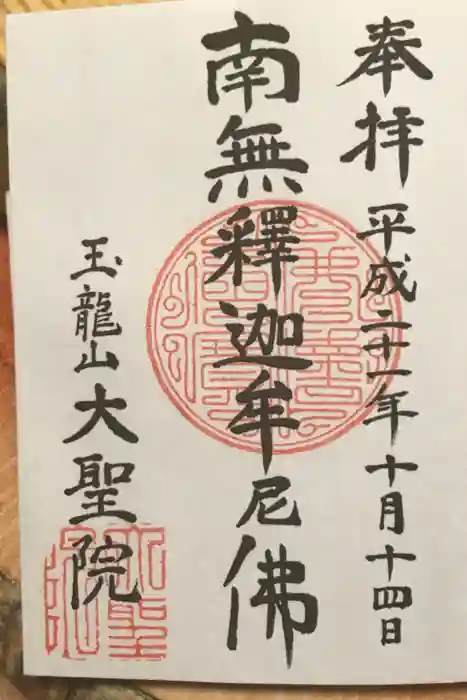 奉拝 平成二十一年十月十四日
南無釋迦牟尼佛
玉龍山大聖院